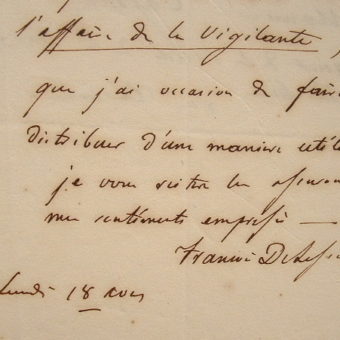 l'affaire de la Vigilante,
que j'ai occasion de faire
distribuer d'une manière utile
je vous
mes sentiments empressés —
François Deless
Lundi 18